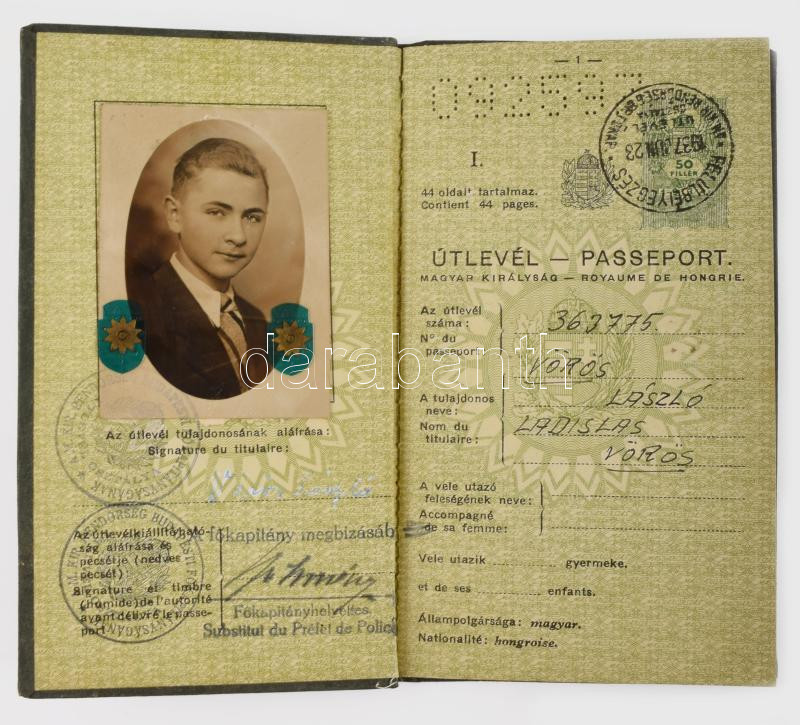 Az útlevél tulajdonosának aláírása:
Signature du titulaire:
Vörös László
Az útlevélkiállító ható-
ság aláírása és
pecsétje (nedves
pecsét)
Signature et timbre
(humide) de l'autorité
ayant délivré le passe-
port
A főkapitány megbizásáb
Főkapitányhelyettes
Substitut du Préfet de Police
darabanth
— 1 —
092597
I.
44 oldalt tartalmaz.
Contient 44 pages.
FELÜLBÉLYEGZÉS
ÚTLEVÉL
OSZTÁLY
1937 JUN 23
50
FILLÉR
ÚTLEVÉL — PASSEPORT.
MAGYAR KIRÁLYSÁG — ROYAUME DE HONGRIE.
Az útlevél
száma:
N° du
passeport:
363775.
VÖRÖS
A tulajdonos
neve:
Nom du
titulaire:
LÁSZLÓ
LADISLAS
VÖRÖS
A vele utazó
feleségének neve:
Accompagné
de sa femme:
Vele utazik ............ gyermeke.
et de ses ............ enfants.
Állampolgársága: magyar.
Nationalité: hongroise.